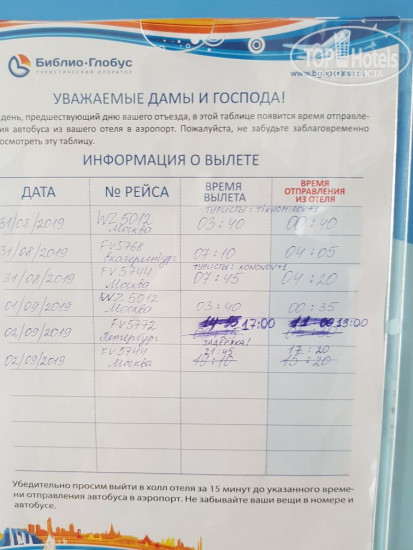 Библио·Глобус
ТУРИСТИЧЕСКИЙ ОПЕРАТОР
TOP Hotels
www.bg
УВАЖАЕМЫЕ ДАМЫ И ГОСПОДА!
день, предшествующий дню вашего отъезда, в этой таблице появится время отправле-
ия автобуса из вашего отеля в аэропорт. Пожалуйста, не забудьте заблаговременно
осмотреть эту таблицу.
ИНФОРМАЦИЯ О ВЫЛЕТЕ
ДАТА № РЕЙСА ВРЕМЯ ВЫЛЕТА ВРЕМЯ ОТПРАВЛЕНИЯ ИЗ ОТЕЛЯ
ТУРИСТЫ: TIKHOMIROV+1
31/08/2019 WZ 5012 Москва 03:40 00:40
31/08/2019 FV5768 Екатеринбург 07:10 04:05
ТУРИСТЫ: KONONOV+1
31/08/2019 FV 5744 Москва 07:45 04:20
01/09/2019 WZ 5012 Москва 03:40 00:35
02/09/2019 FV5772 Петербург 17:00 13:00
ЗАДЕРЖКА!
02/09/2019 FV5744 Москва 21:45 17:20
19:10 15:20
Убедительно просим выйти в холл отеля за 15 минут до указанного време-
ни отправления автобуса в аэропорт. Не забывайте ваши вещи в номере и
автобусе.